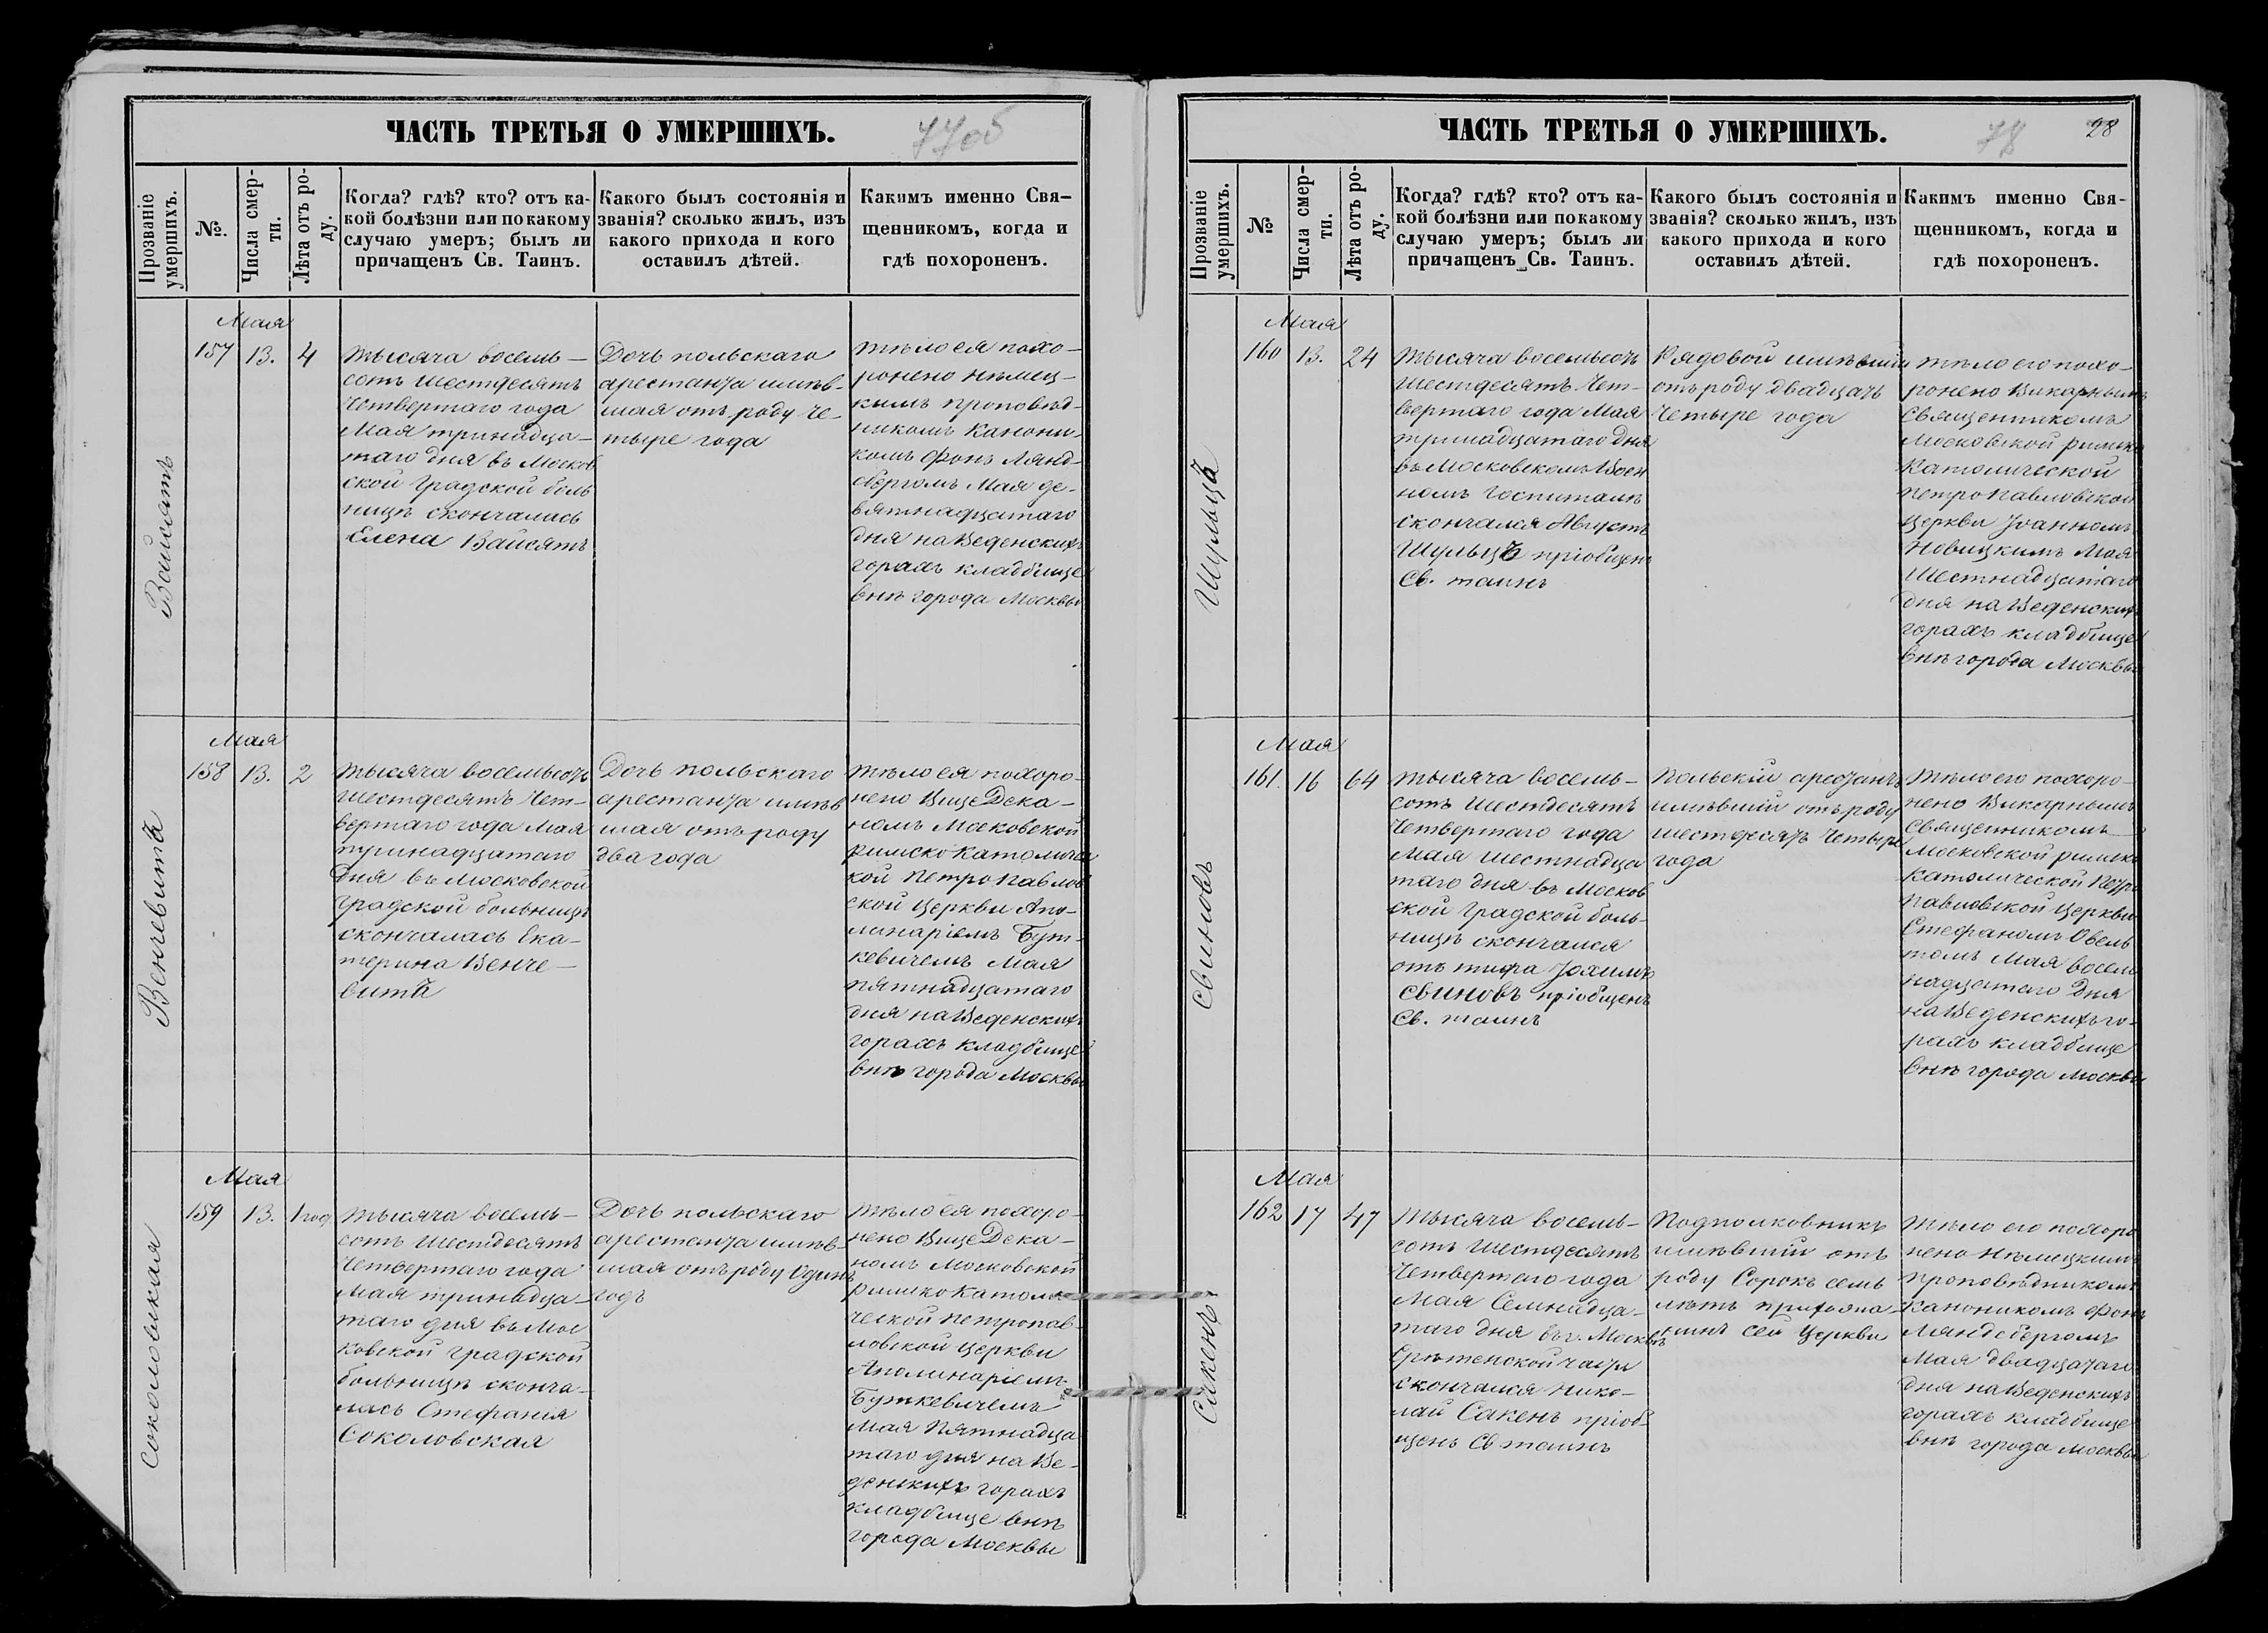 ЧАСТЬ ТРЕТЬЯ О УМЕРШИХЪ.
77об
Прозваніе умершихъ.
№.
Числа смерти.
Лѣта отъ роду.
Когда? гдѣ? кто? отъ ка-
кой болѣзни или по какому
случаю умеръ; былъ ли
причащенъ Св. Таинъ.
Какого былъ состоянія и
званія? сколько жилъ, изъ
какого прихода и кого
оставилъ дѣтей.
Каким именно Свя-
щенникомъ, когда и
гдѣ похороненъ.
Вайсятъ
Мая
157
13.
4
тысяча восемь-
сотъ шестдесятъ
четвертаго года
Мая тринадца-
таго дня въ Москов
ской градской боль
ницѣ скончалась
Елена Вайсятъ
Дочь польскаго
арестанта имѣв-
шая отъ роду че-
тыре года
тѣло ея похо-
ронено нѣмец-
кимъ проповѣд-
никомъ Канони-
комъ фонъ Лянд-
сбергомъ Мая де-
вятнадцатаго
дня на Веденскихъ
горахъ кладбище
внѣ города Москвы
Венчевитъ
Мая
158
13.
2
тысяча восемьсотъ
шестдесятъ чет-
вертаго года Мая
тринадцатаго
дня въ Московской
градской больницѣ
скончалась Ека-
терина Венче-
витъ
Дочь польскаго
арестанта имѣв
шая отъ роду
два года
тѣло ея похоро-
нено Вице Дека-
номъ Московской
римско Католичес
кой Петро Павлов
ской церкви Апо-
линаріемъ Бут-
кевичемъ Мая
пятнадцатаго
дня на Веденскихъ
горахъ кладбище
внѣ города Москвы
Соколовская
Мая
159
13.
1 год
тысяча восемь-
сотъ шестдесятъ
четвертаго года
Мая тринадца-
таго дня въ Мос
ковской градской
больницѣ сконча-
лась Стефанія
Соколовская
Дочь польскаго
арестанта имѣв-
шая отъ роду одинъ
годъ
тѣло ея похоро-
нено Вице Дека-
номъ Московской
римско Католи
ческой Петропав-
ловской церкви
Аполинаріемъ
Буткевичемъ
Мая пятнадца
таго дня на Ве-
денскихъ горахъ
кладбище внѣ
города Москвы
ЧАСТЬ ТРЕТЬЯ О УМЕРШИХЪ.
78
28
Прозваніе умершихъ.
№
Числа смерти.
Лѣта отъ роду.
Когда? гдѣ? кто? отъ ка-
кой болѣзни или по какому
случаю умеръ; былъ ли
причащенъ Св. Таинъ.
Какого былъ состоянія и
званія? сколько жилъ, изъ
какого прихода и кого
оставилъ дѣтей.
Каким именно Свя-
щенникомъ, когда и
гдѣ похороненъ.
Шульцъ
Мая
160
13.
24
тысяча восемьсотъ
шестдесятъ чет-
вертаго года Мая
тринадцатаго дня
въ Московскомъ Воен
номъ госпиталѣ
скончался Августъ
Шульцъ пріобщенъ
Св. таинъ
Рядовой имѣвшій
отъ роду двадцать
четыре года
тѣло его похо-
ронено Викарнымъ
Священникомъ
Московской римско
Католической
Петропавловской
церкви Іоанномъ
Новицкимъ Мая
шестнадцатаго
дня на Веденскихъ
горахъ кладбище
внѣ города Москвы
Свиновъ
Мая
161.
16
64
тысяча восемь-
сотъ шестдесятъ
четвертаго года
Мая шестнадца
таго дня въ Москов
ской градской боль-
ницѣ скончался
отъ тифа Іохимъ
Свиновъ пріобщенъ
Св. таинъ
Польскій арестантъ
имѣвшій отъ роду
шестдесятъ четыре
года
тѣло его похоро-
нено Викарнымъ
Священникомъ
Московской римско
Католической Петро
Павловской церкви
Стефаномъ Овель
томъ Мая восем
надцатаго дня
на Веденскихъ го-
рахъ кладбище
внѣ города Москвы
Сакенъ
Мая
162
17
47
тысяча восемь-
сотъ шестдесятъ
четвертаго года
Мая Семнадца-
таго дня въ г. Москвѣ
Срѣтенской части
скончался Нико-
лай Сакенъ пріоб-
щенъ Св таинъ
Подполковникъ
имѣвшій отъ
роду сорокъ семь
лѣтъ прихожа-
нинъ сей церкви
тѣло его похоро
нено нѣмецкимъ
проповѣдникомъ
каноникомъ фонъ
Ляндсбергомъ
Мая двадцатаго
дня на Веденскихъ
горахъ кладбище
внѣ города Москвы